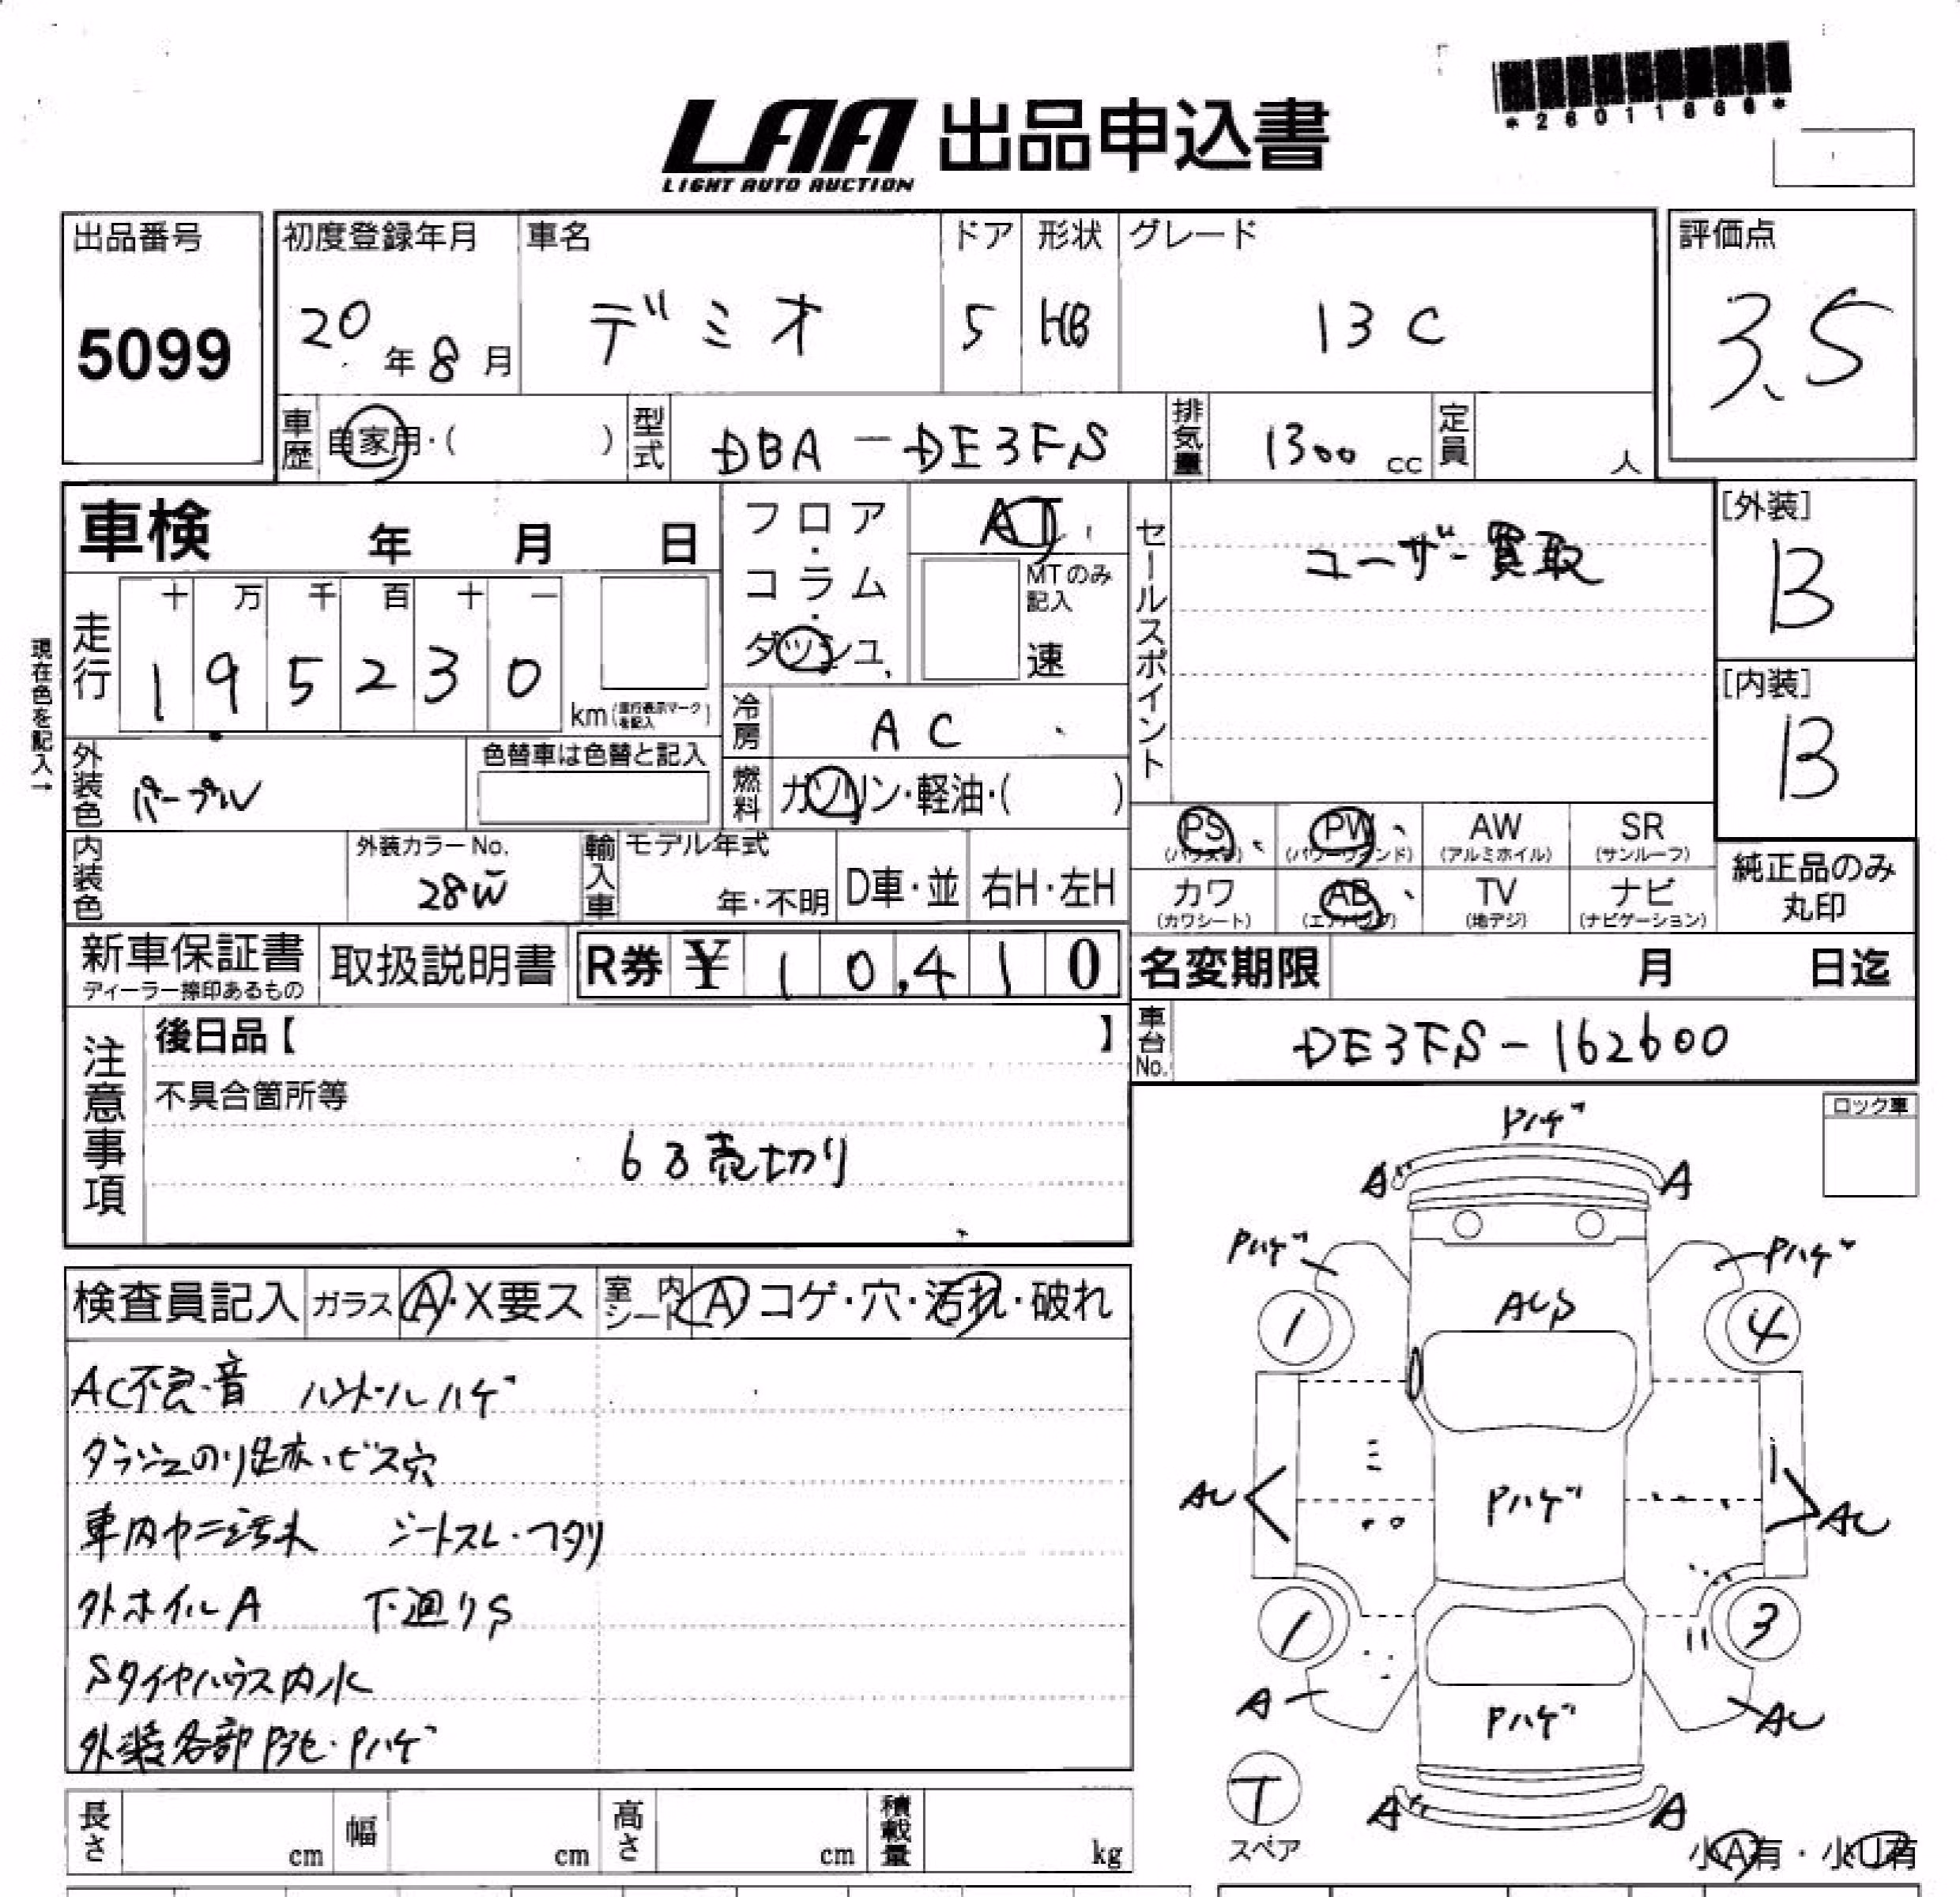 *26011666*
LAA 出品申込書
LIGHT AUTO AUCTION
出品番号
5099
初度登録年月
20年8月
車名
デミオ
ドア
5
形状
HB
グレード
13C
評価点
3.5
車歴
自家用・( )
型式
DBA-DE3FS
排気量
1300 cc
定員
人
車検 年 月 日
フロア・コラム・ダッシュ
AT
MTのみ記入
速
セールスポイント
ユーザー買取
[外装]
B
[内装]
B
現在色を記入→
走行
十 万 千 百 十 一
1 9 5 2 3 0
km(走行表示マークを記入)
冷房
AC
外装色
パープル
色替車は色替と記入
燃料
ガソリン・軽油・( )
PS (パワステ)
PW (パワーウィンド)
AW (アルミホイル)
SR (サンルーフ)
カワ (カワシート)
AB (エアバッグ)
TV (地デジ)
ナビ (ナビゲーション)
純正品のみ丸印
内装色
外装カラーNo.
28W
輸入車
モデル年式
年・不明
D車・並
右H・左H
新車保証書
ディーラー捺印あるもの
取扱説明書
R券 ¥ 10,410
名変期限 月 日迄
車台No.
DE3FS-162600
注意事項
後日品【 】
不具合箇所等
売切り
ロック車
検査員記入
ガラス
A・X要ス
室内シート
A コゲ・穴・汚れ・破れ
AC不良・音 ハンドルハゲ
ダッシュのり跡・ビス穴
車内ヤニ汚れ シートスレ・フタリ
外ホイルA 下廻りS
Sタイヤハウス内水
外装各部P・Pハゲ
Pハゲ
A A
Pハゲ Pハゲ
1 ACS 4
AU Pハゲ AU
1 3
A Pハゲ AU
T
スペア
A A
小A有・小U有
長さ cm
幅 cm
高さ cm
積載量 kg